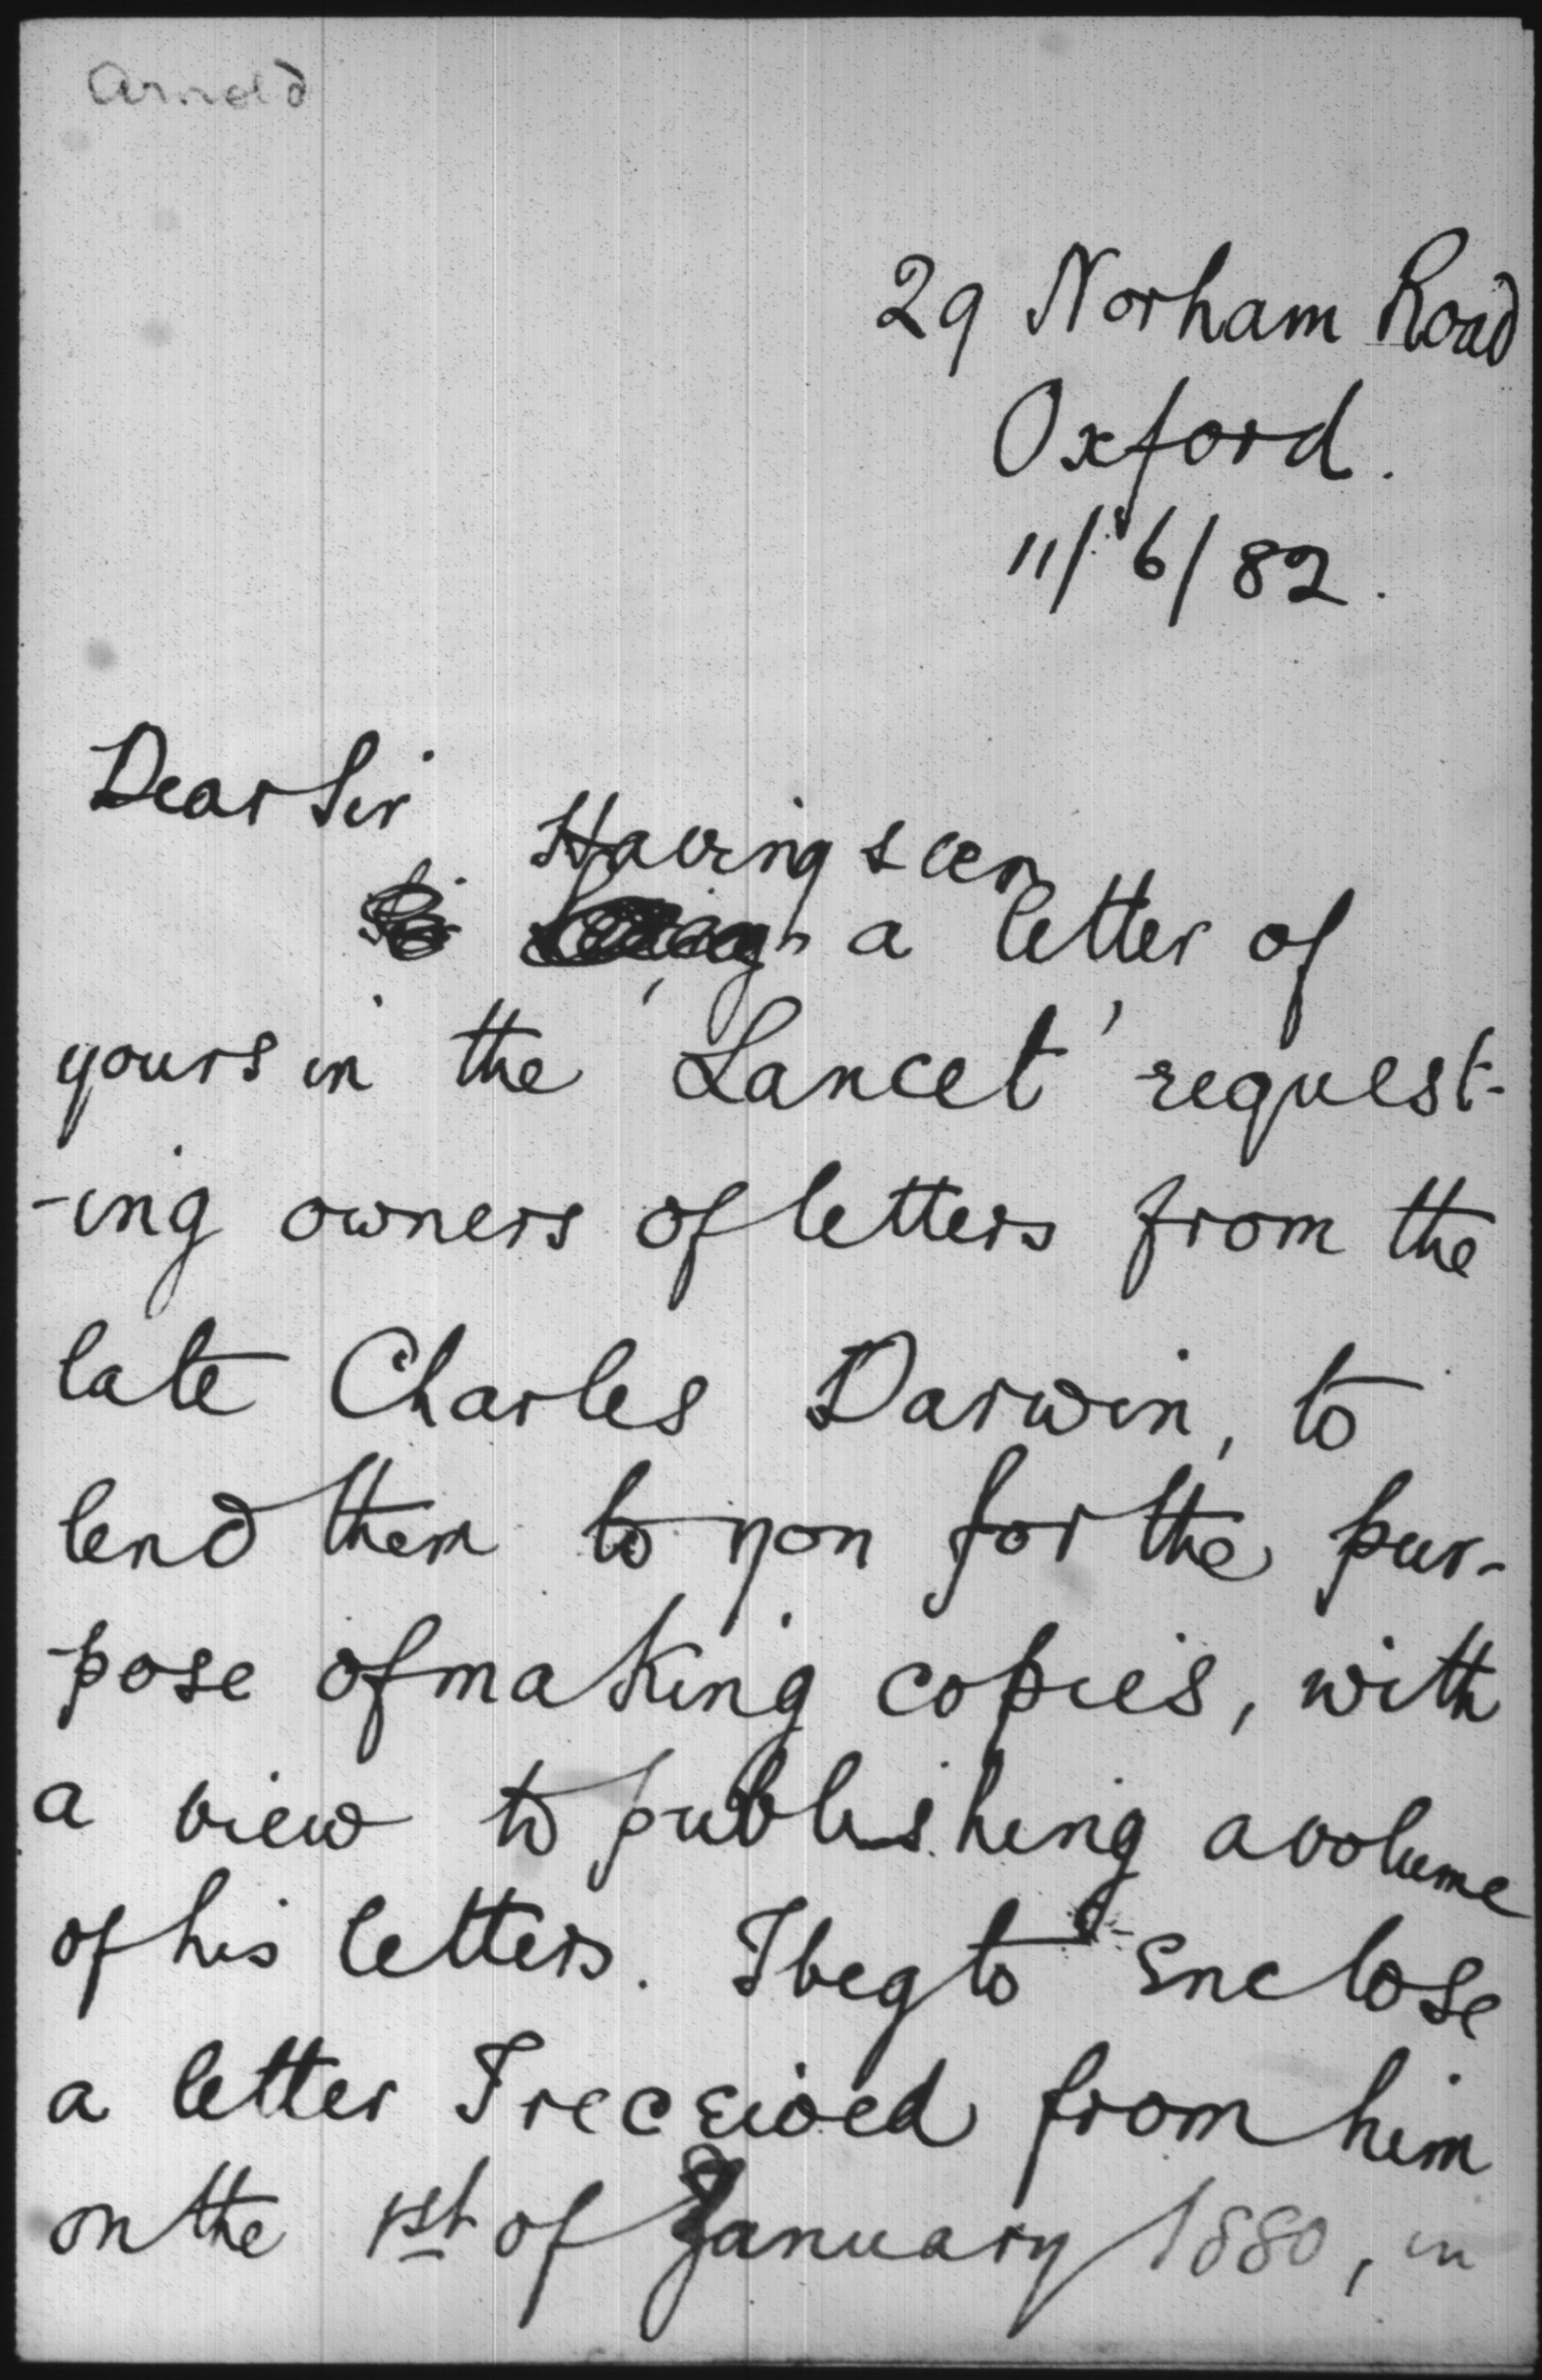 Arnold
29 Norham Road
Oxford.
11/6/82.
Dear Sir
Having seen
a letter of
yours in the 'Lancet' request-
-ing owners of letters from the
late Charles Darwin, to
lend them to you for the pur-
-pose of making copies, with
a view to publishing a volume
of his letters. I beg to enclose
a letter I received from him
on the 1st of January 1880, in